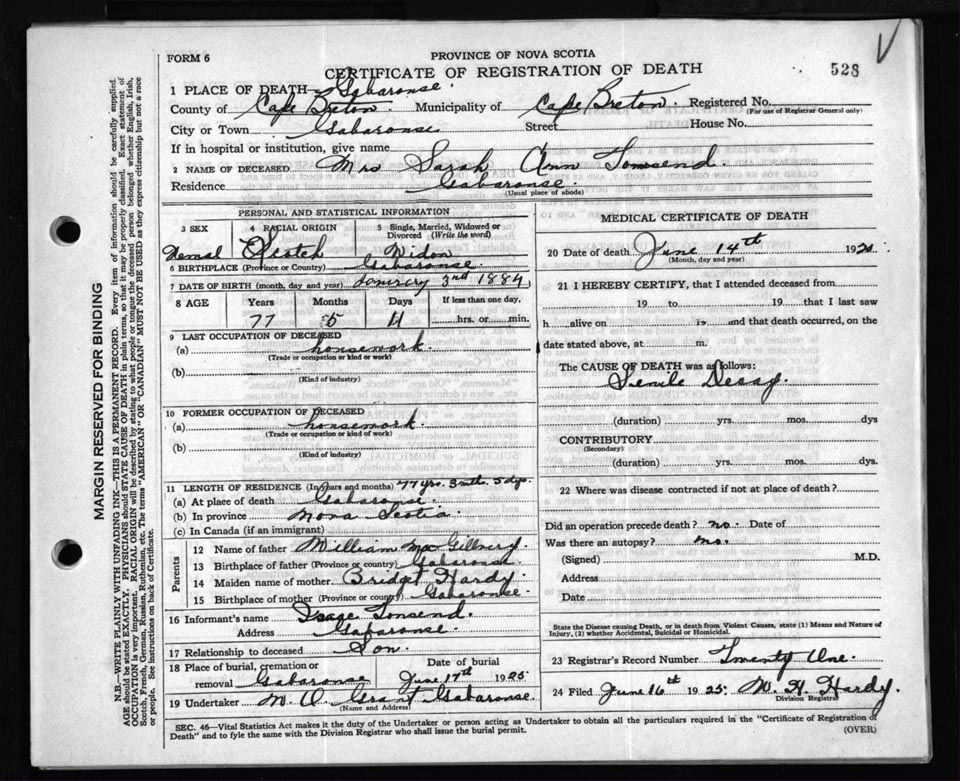 FORM 6
PROVINCE OF NOVA SCOTIA
CERTIFICATE OF REGISTRATION OF DEATH
528
1 PLACE OF DEATH— Gabarouse.
County of Cape Breton Municipality of Cape Breton. Registered No.
(For use of Registrar General only)
City or Town Gabarouse Street House No.
If in hospital or institution, give name
2 NAME OF DECEASED Mrs Sarah Ann Townsend.
Residence Gabarouse.
(Usual place of abode)
PERSONAL AND STATISTICAL INFORMATION
3 SEX 4 RACIAL ORIGIN 5 Single, Married, Widowed or Divorced (Write the word)
Femal Scotch Widow
6 BIRTHPLACE (Province or Country) Gabarouse.
7 DATE OF BIRTH (month, day and year) 3rd 1884
8 AGE Years Months Days If less than one day,
77 5 11 hrs. or min.
9 LAST OCCUPATION OF DECEASED
(a) housework.
(Trade or occupation or kind of work)
(b)
(Kind of industry)
10 FORMER OCCUPATION OF DECEASED
(a) housework.
(Trade or occupation or kind of work)
(b)
(Kind of industry)
11 LENGTH OF RESIDENCE (In years and months) 77 yrs. 5 dys.
(a) At place of death Gabarouse.
(b) In province Nova Scotia
(c) In Canada (if an immigrant)
Parents
12 Name of father William
13 Birthplace of father (Province or country) Gabarouse.
14 Maiden name of mother Bridget Hardy.
15 Birthplace of mother (Province or country) Gabarouse.
16 Informant's name Townsend.
Address Gabarouse.
17 Relationship to deceased Son.
18 Place of burial, cremation or Date of burial
removal Gabarouse June 17th 1925
19 Undertaker M. O. Grant Gabarouse.
(Name and Address)
MEDICAL CERTIFICATE OF DEATH
20 Date of death June 14th 192
(Month, day and year)
21 I HEREBY CERTIFY, that I attended deceased from
19 to 19 that I last saw
h alive on 19 and that death occurred, on
date stated above, at m.
The CAUSE OF DEATH was as follows:
Senile
(duration) yrs. mos. dys
CONTRIBUTORY
(Secondary)
(duration) yrs. mos. dys.
22 Where was disease contracted if not at place of death?
Did an operation precede death? no. Date of
Was there an autopsy? no.
(Signed) M.D.
Address
Date
State the Disease causing Death, or in death from Violent Causes, state (1) Means and Nature of Injury, (2) whether Accidental, Suicidal or Homicidal.
23 Registrar's Record Number Twenty One.
24 Filed June 16th 1925. W. H. Hardy.
Division Registrar
SEC. 46—Vital Statistics Act makes it the duty of the Undertaker or person acting as Undertaker to obtain all the particulars required in the "Certificate of Registration of
Death" and to fyle the same with the Division Registrar who shall issue the burial permit.
(OVER)
MARGIN RESERVED FOR BINDING
N.B.—WRITE PLAINLY WITH UNFADING INK—THIS IS A PERMANENT RECORD. Every item of information should be carefully supplied.
AGE should be stated EXACTLY. PHYSICIANS should STATE CAUSE OF DEATH in plain terms, so that it may be properly classified. Exact statement of
OCCUPATION is very important. RACIAL ORIGIN will be described by stating to what people or tongue the deceased person belonged whether English, Irish,
Scotch, French, German, Russian, Ruthenian, etc. The terms "AMERICAN" or "CANADIAN" MUST NOT BE USED as they express citizenship but not a race
or people. See instructions on back of Certificate.